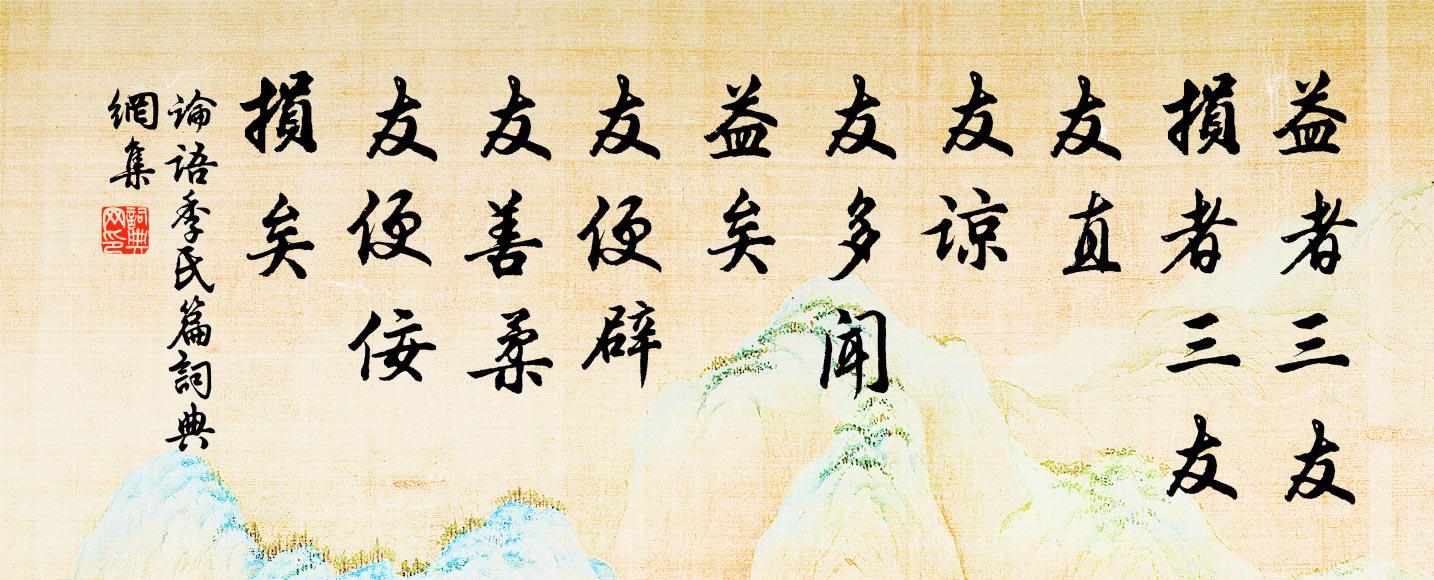 益者三友
損者三友
友直
友谅
友多闻
益矣
友便辟
友善柔
友便佞
損矣
論語季氏篇詞典
網集
詞典
网印